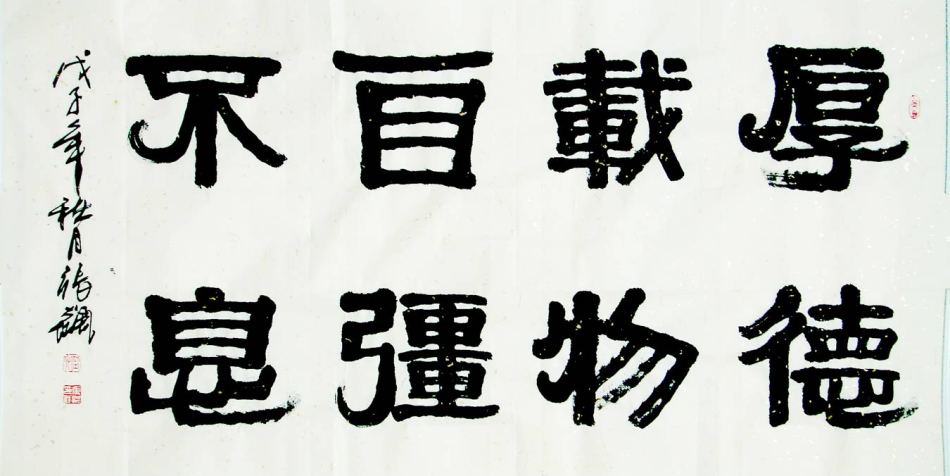 厚德
載物
自彊
不息
戊子年秋月張